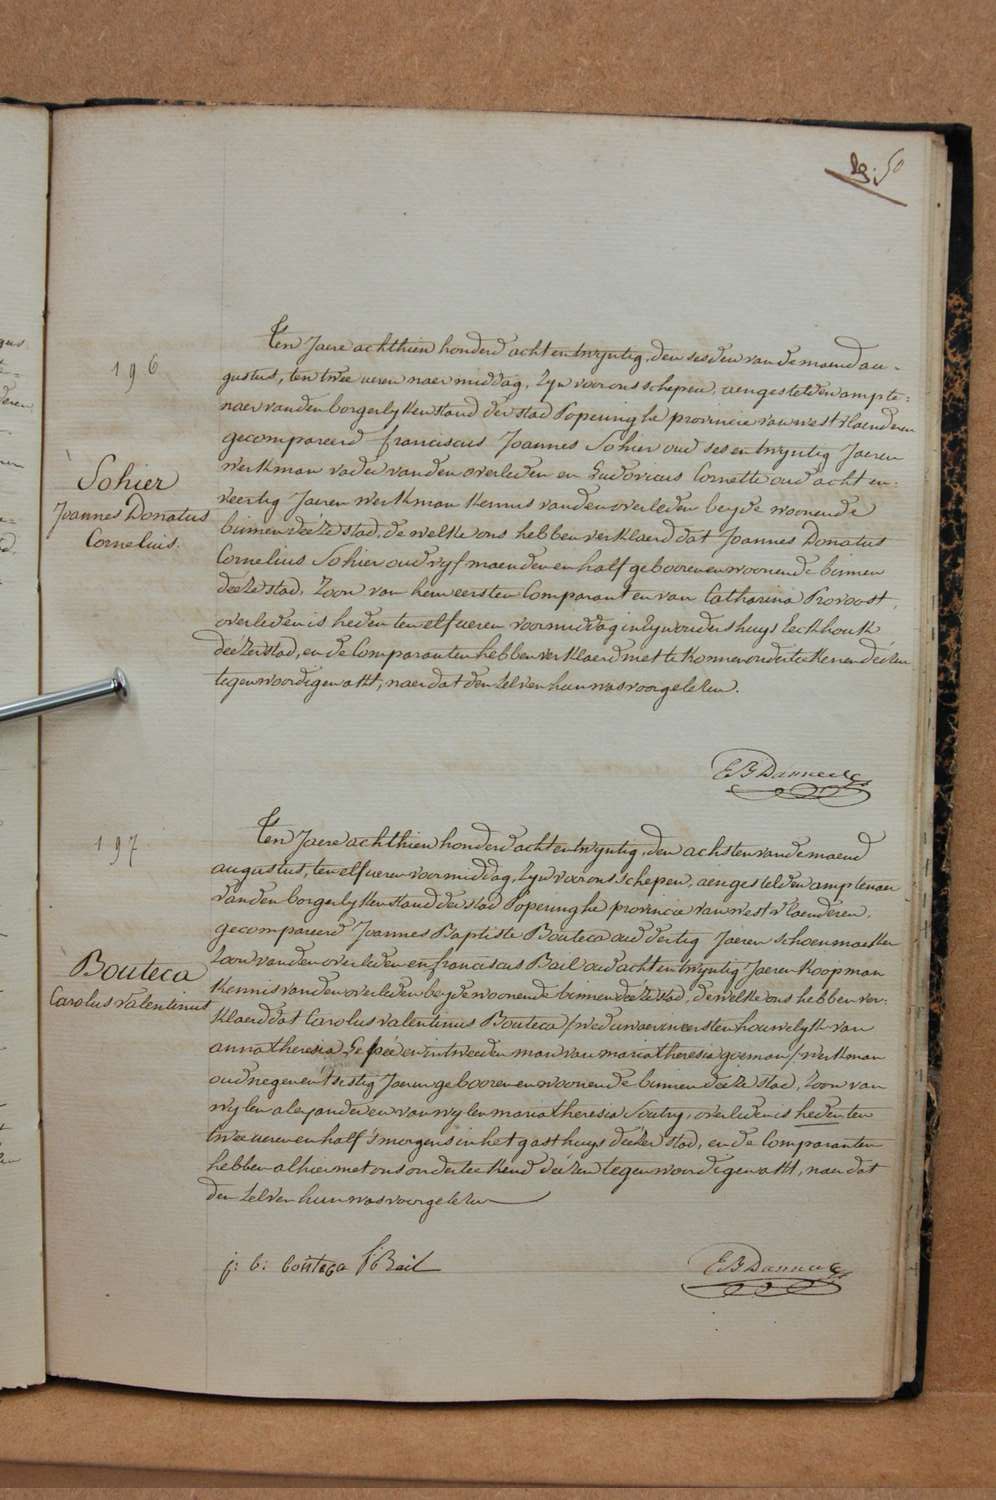 50
196
Sohier
Joannes Donatus
Cornelius.
Ten Jaere achthien honderd acht en twyntig, den sesden van de maend au-
gustus, ten twee ueren naermiddag, zyn voor ons schepen, aengestelden ampte-
naer van den borgerlyken stand der stad Poperinghe provincie van westvlaenderen
gecompareerd franciscus Joannes Sohier oud ses en twyntig Jaeren
werkman vader van den overleden en Ludovicus Cornette oud acht en-
veertig Jaeren werkman kennis van den overleden beyde woonende
binnen deéze stad, de welke ons hebben verklaerd dat Joannes Donatus
Cornelius Sohier oud vyf maenden en half gebooren en woonende binnen
deéze stad, zoon van hem eersten Comparant en van Catharina Provoost,
overleden is heden ten elf ueren voormiddag in zyn ouders huys Eeckhoutk
deézer stad, en de Comparanten hebben verklaerd niet te konnen onderteekenen deézen
tegenwoordigen akt, naer dat den zelven hun was voorgelezen.
197
Bouteca
Carolus valentinus
Ten Jaere achthien honderd acht en twyntig, den achsten van de maend
augustus, ten elf ueren voormiddag, zyn voor ons schepen, aengestelden amptenaer
van den borgerlyken stand der stad Poperinghe provincie van westvlaenderen,
gecompareerd Joannes Baptiste Bouteca oud dertig Jaeren schoenmaeker
zoon van den overleden en franciscus Bail oud acht en twyntig Jaeren koopman
kennis van den overleden beyde woonende binnen deéze stad, de welke ons hebben ver-
klaerd dat Carolus valentinus Bouteca /: weduwaer in eersten houwelyk van
anna theresia en in tweeden man van maria theresia goeman /: werkman
oud negen en t'sestig Jaeren gebooren en woonende binnen deéze stad, zoon van
wylen alexander en van wylen maria theresia Soutry, overleden is heden ten
twee ueren en half 's morgens in het gasthuys deézer stad, en de Comparanten
hebben alhier met ons onderteekend deézen tegenwoordigen akt, naer dat
den zelven hun was voorgelezen
j: b: bouteca f: Bail